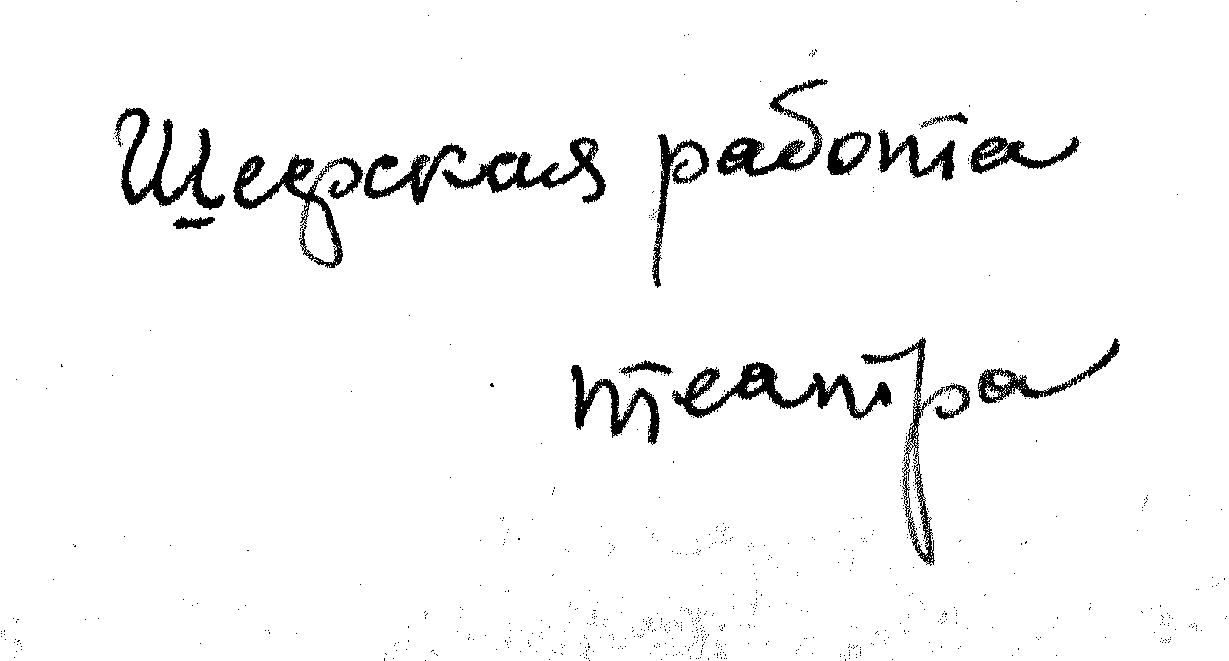 Шефская работа
театра